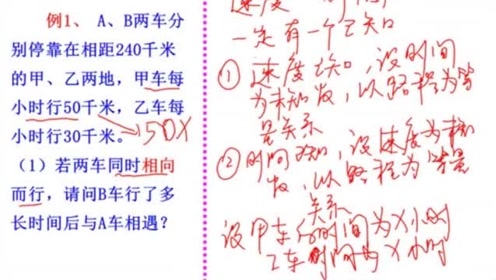 例1、 A、B两车分
别停靠在相距240千米
的甲、乙两地，甲车每
小时行50千米，乙车每
小时行30千米。
50X
（1）若两车同时相向
而行，请问B车行了多
长时间后与A车相遇？
一定有一个已知
① 速度已知，设时间
为未知数，以路程为等
量关系
② 时间已知，设速度为未知
数，以路程为等量
关系
设甲车的时间为X小时
乙车时间为X小时